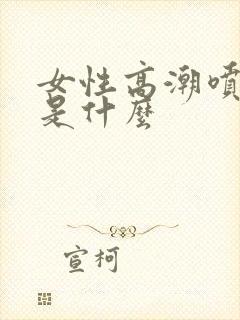 女性高潮噴
是什麼
宣柯